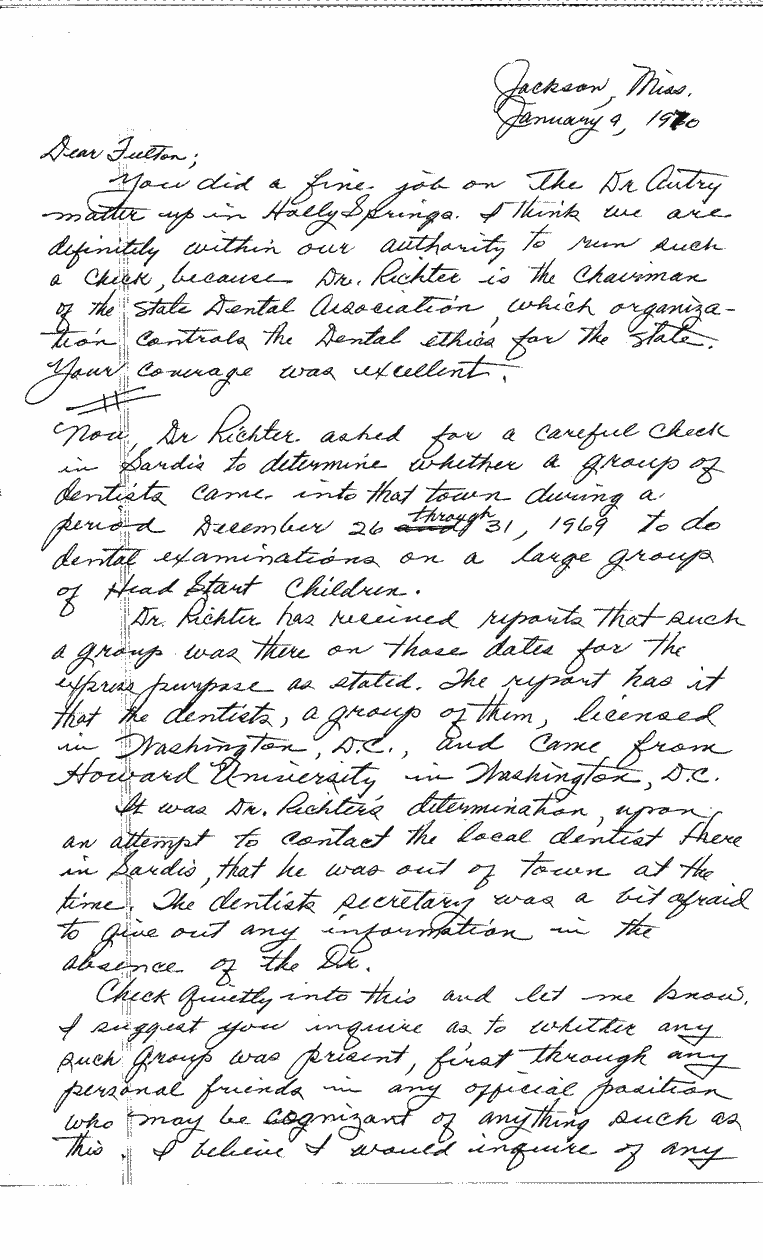 Jackson, Miss.
January 9, 1970
Dear Fulton;
You did a fine job on the Dr Autry
matter up in Holly Springs. I think we are
definitely within our authority to run such
a check, because Dr. Richter is the Chairman
of the State Dental Association, which organiza-
tion controls the Dental ethics for the State.
Your coverage was excellent.
Now, Dr Richter asked for a careful check
in Sardis to determine whether a group of
dentists came into that town during a
period December 26 through 31, 1969 to do
dental examinations on a large group
of Head Start Children.
Dr. Richter has received reports that such
a group was there on those dates for the
express purpose as stated. The report has it
that the dentists, a group of them, licensed
in Washington, D.C., and came from
Howard University in Washington, D.C.
It was Dr. Richter's determination, upon
an attempt to contact the local dentist there
in Sardis, that he was out of town at the
time. The dentists secretary was a bit afraid
to give out any information in the
absence of the Dr.
Check quietly into this and let me know.
I suggest you inquire as to whether any
such group was present, first through any
personal friends in any official position
who may be cognizant of anything such as
this. I believe I would inquire of any